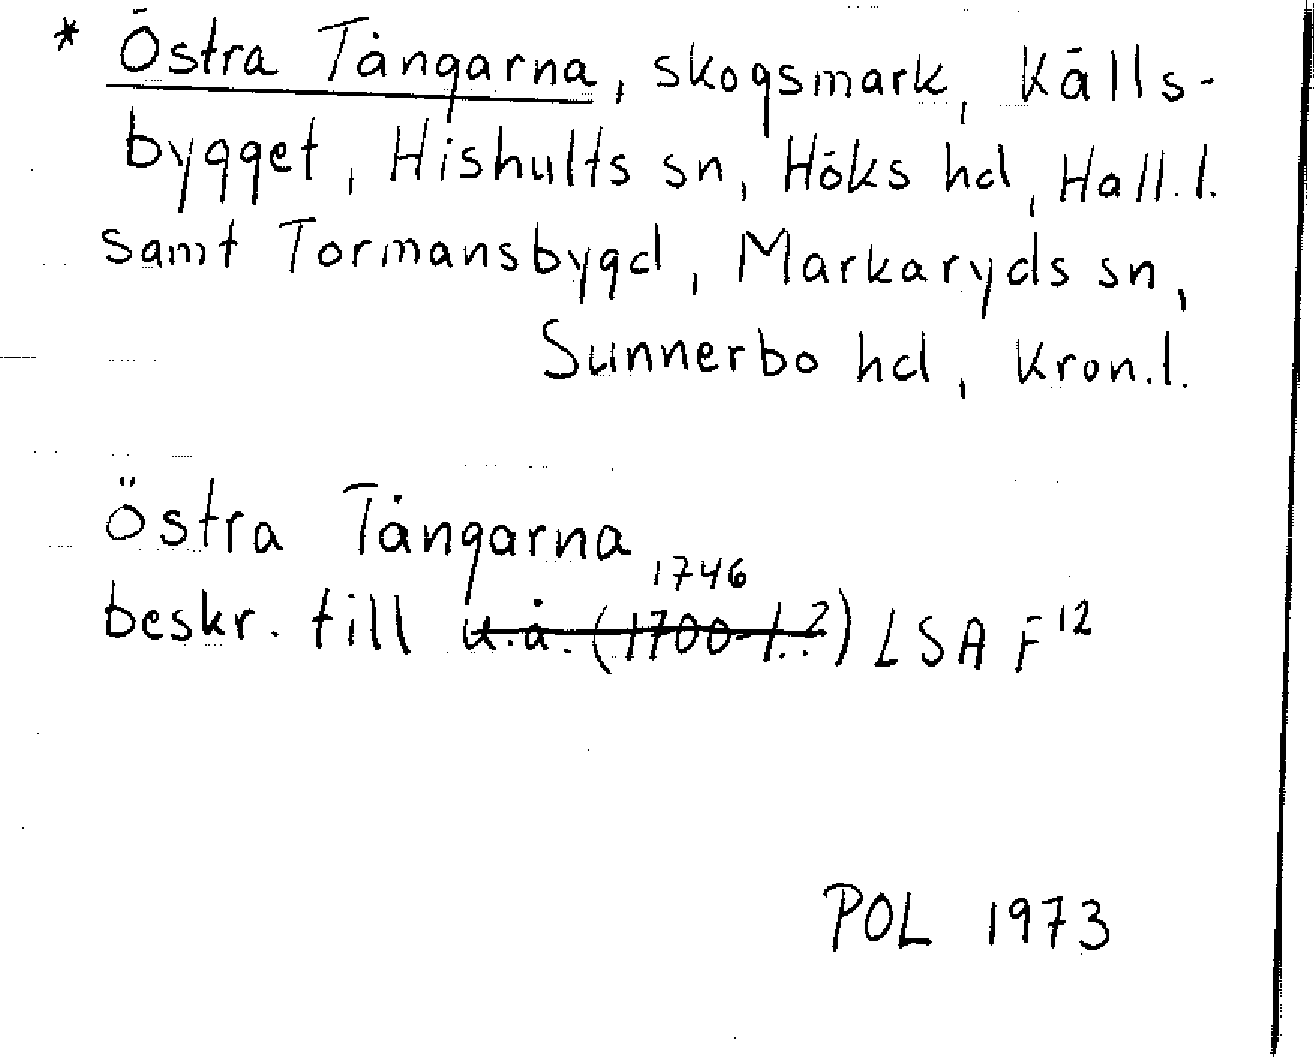 * Östra Tångarna, skogsmark, Källs-
bygget, Hishults sn, Höks hd, Hall.l.
samt Tormansbygd, Markaryds sn,
Sunnerbo hd, Kron.l.
Östra Tångarna
1746
beskr. till u.å. (1700-t..?) LSA F12
POL 1973